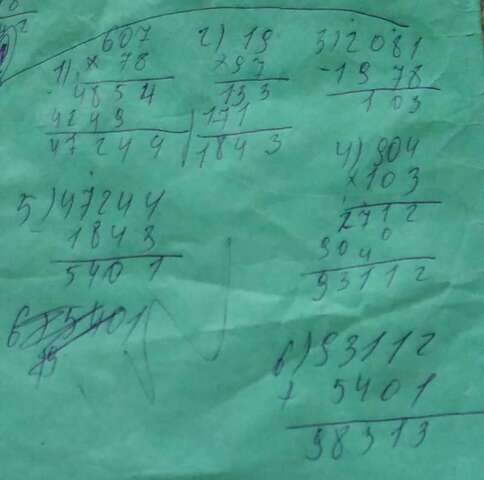 1) 607
× 78
4854
4249
47244
2) 19
× 97
133
171
1843
3) 2081
- 1978
103
4) 904
× 103
2712
0
904
93112
5) 47244
1843
5401
6) 93112
+ 5401
98313